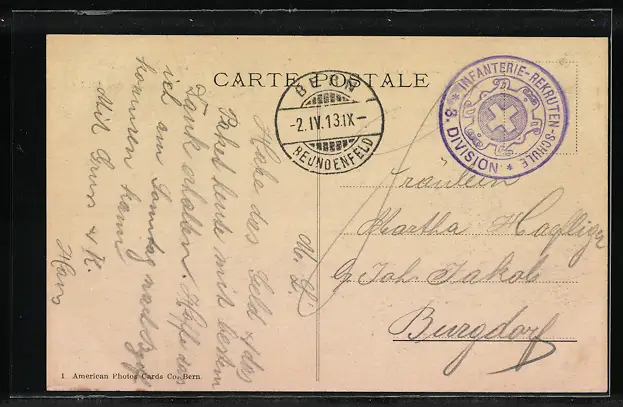 CARTE POSTALE
BERN
-2.IV.13.IX-
BEUNDENFELD
INFANTERIE-REKRUTEN-SCHULE
* 3. DIVISION *
M. L.
Habe das Geld & das
Paket heute mit bestem
Dank erhalten. Hoffe dass
ich am Sonntag nach Bgdf
kommen kann
Mit Gruss & K.
Hans
Fräulein
Martha
p. Joh. Jakob
Burgdorf
1 American Photos Cards Co. Bern.